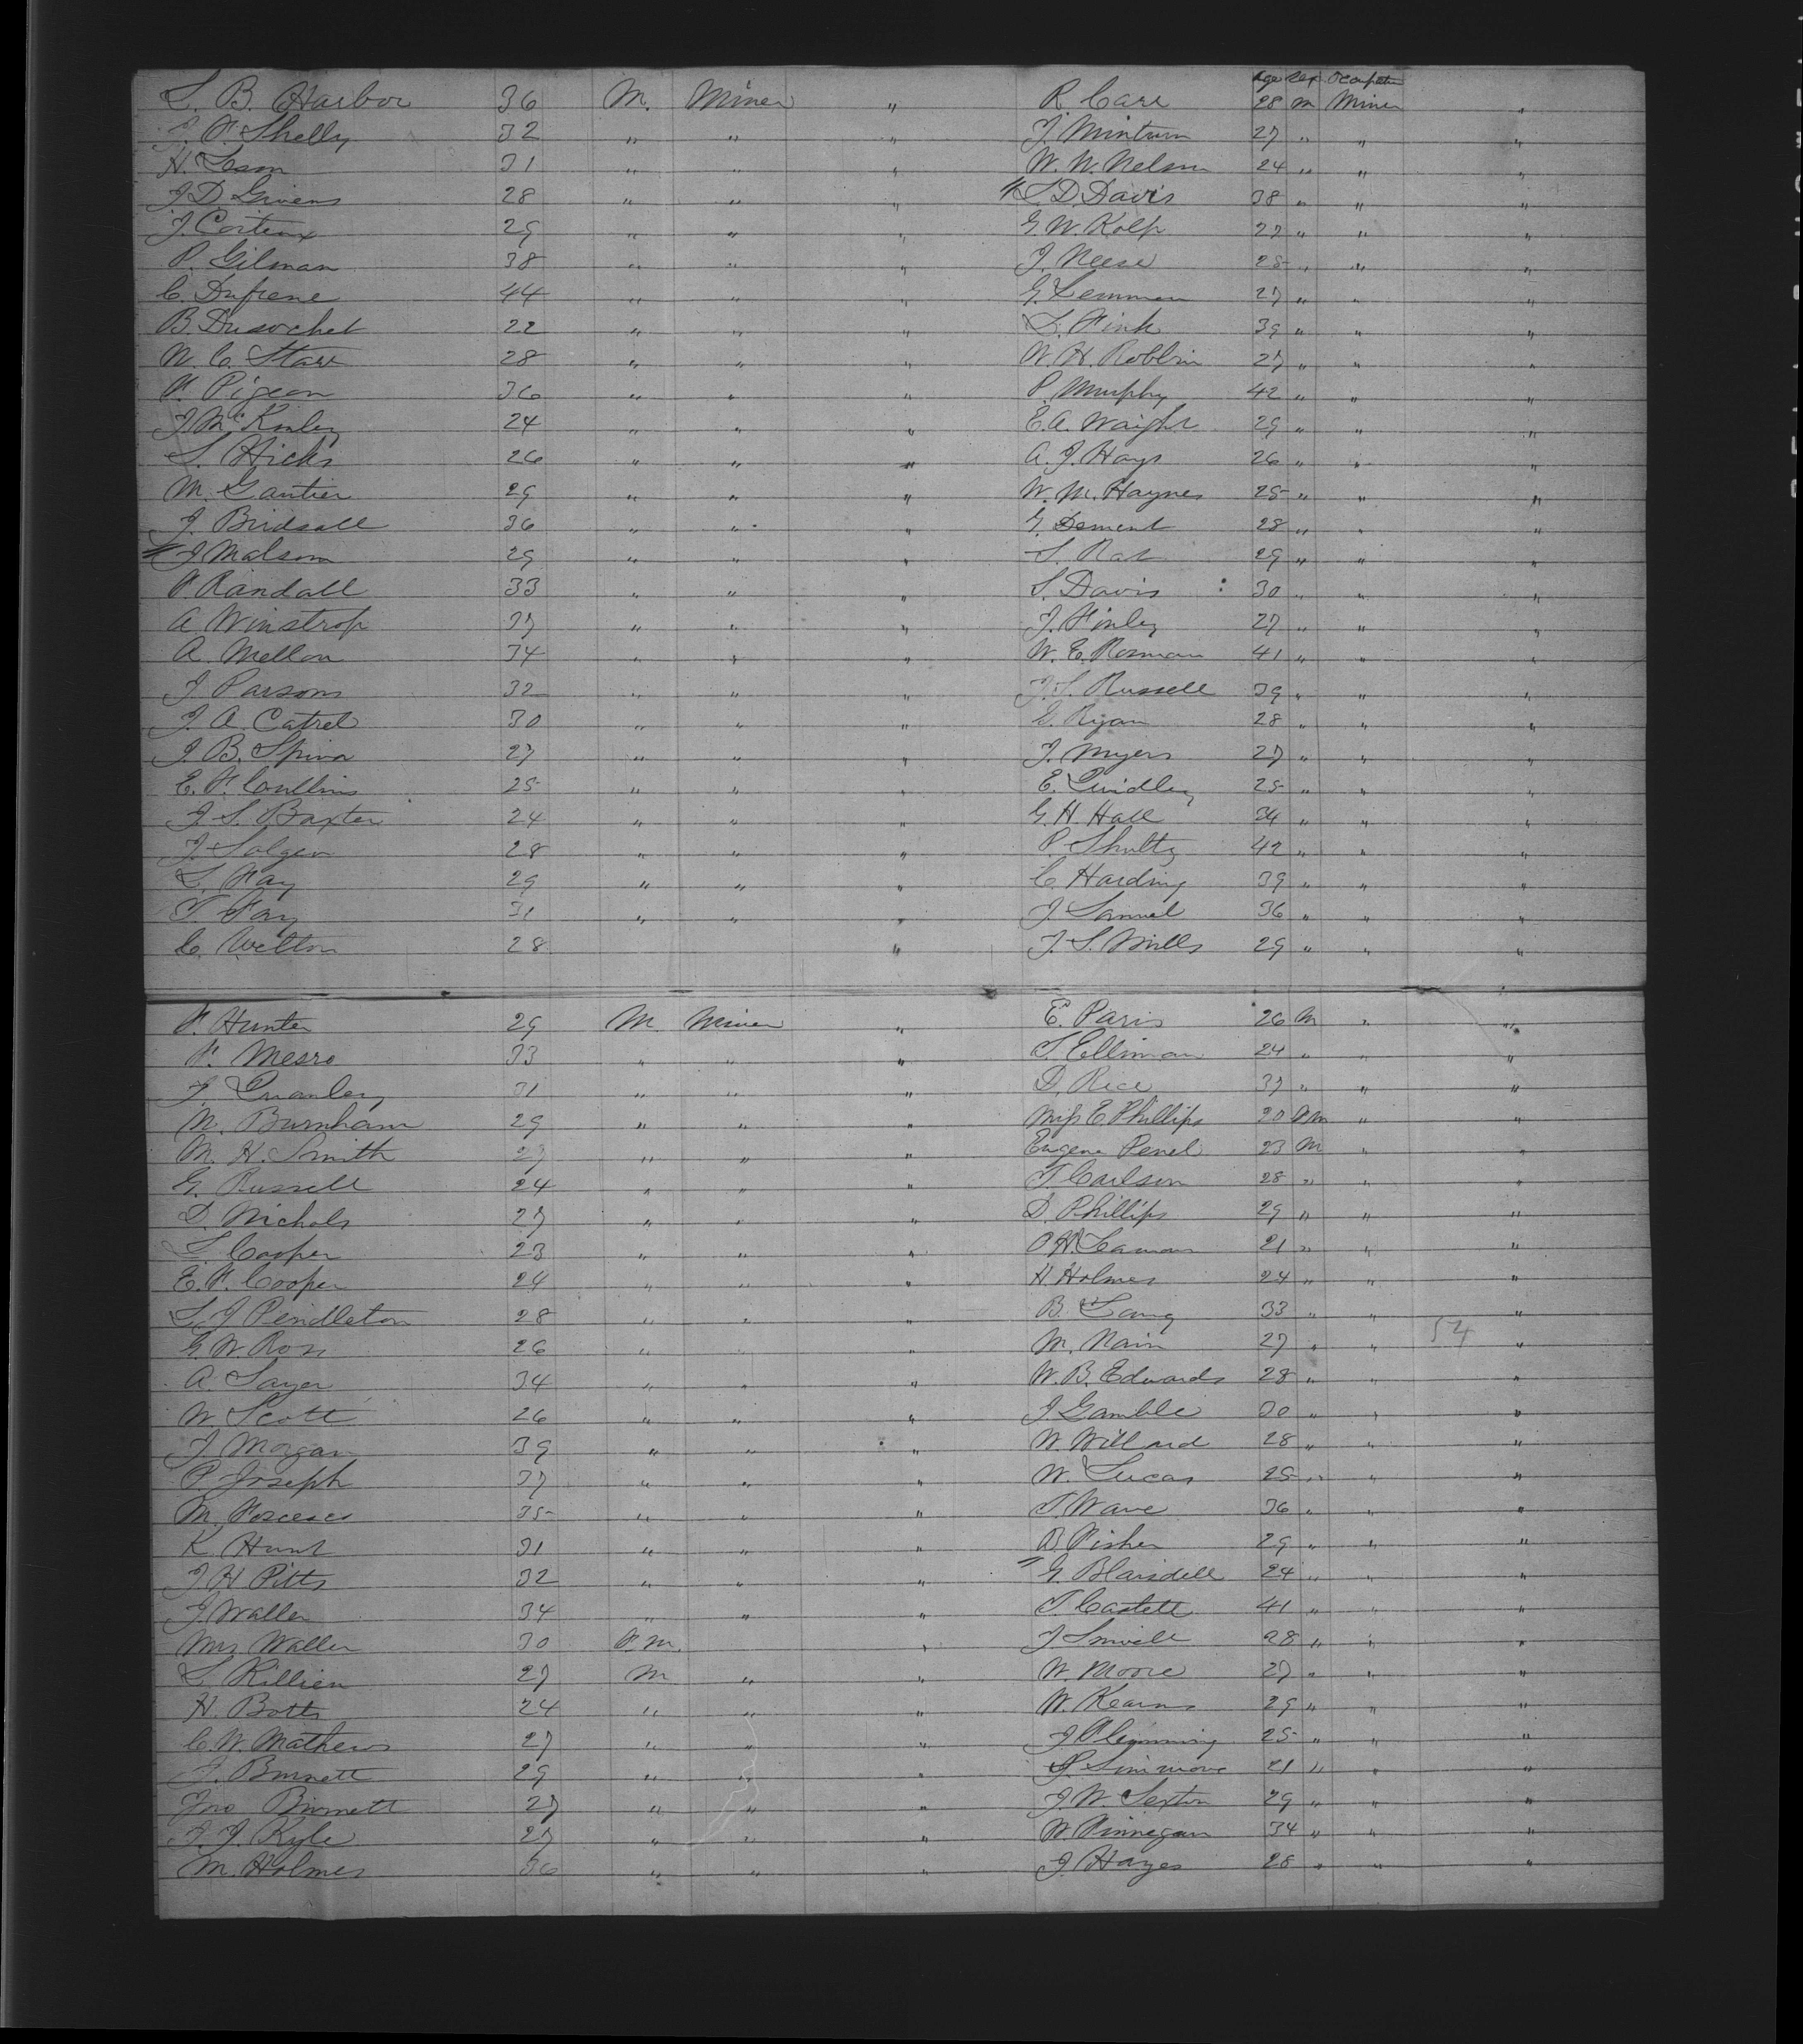 L. B. Harbor 36 M. Miner "
J. F. Shelly 32 " " "
H. Leson 31 " " "
J. D. Givens 28 " " "
J. Corteux 29 " " "
P. Gilman 38 " " "
C. Dufrene 44 " " "
B. Dusochet 22 " " "
W. C. Starr 28 " " "
F. Pigeon 36 " " "
J McKinley 24 " " "
L. Hicks 26 " " "
M. Gautier 29 " " "
J. Birdsall 36 " " "
J Malsom 29 " " "
F Randall 33 " " "
A Winstrop 37 " " "
A. Mellon 34 " " "
J Parsons 32 " " "
J. A. Catrel 30 " " "
J. B. Spiva 27 " " "
E. F. Cullins 25 " " "
J. S. Baxter 24 " " "
J. Solgen 28 " " "
L. Fay 29 " " "
T. Fay 31 " " "
C. Welton 28 "
F. Hunter 29 M Miner "
F. Mesro 33 " " "
J. Quanley 31 " " "
N. Burnham 29 " " "
M. H. Smith 27 " " "
G. Russell 24 " " "
D. Nichols 27 " " "
L. Cooper 23 " " "
E. F. Cooper 24 " " "
L. J Pendleton 28 " " "
G W Ross 26 " " "
A. Sayer 34 " " "
W. Scott 26 " " "
J Morgan 39 " " "
P. Joseph 37 " " "
M. 35 " " "
K Hunt 31 " " "
J H Pitts 32 " " "
J Waller 34 " " "
Mrs Waller 30 F. M. "
L Killien 27 M " "
H. Botts 24 " " "
C. W. Mathews 27 " " "
J. Burnett 29 " " "
Jno Burnett 27 " " "
J. J. Kyle 27 " " "
M. Holmes 36 " " "
Age Sex Ocupation
R. Carr 28 M Miner "
J. Minturn 27 " " "
W. W. Nelson 24 " " "
L. D. Davis 38 " " "
G. W. Kolp 27 " " "
J. Neese 25 " " "
G. Lemmon 27 " " "
L. Fink 39 " " "
W. H. Roblin 27 " " "
P. Murphy 42 " " "
E. A. Waight 29 " " "
A. J. Hays 26 " " "
W. M. Haynes 25 " " "
G. Dement 28 " " "
S. Rat 29 " " "
S. Davis 30 " " "
J. Finley 27 " " "
W. E. Rosman 41 " " "
J. S. Russell 39 " " "
G. Ryan 28 " " "
J. Myers 27 " " "
E. Quidley 25 " " "
G. H. Hall 34 " " "
P. Shultz 42 " " "
C Harding 39 " " "
J. Samuel 36 " " "
J. S. Mills 29 " " "
E. Paris 26 M " "
S. Elliman 24 " " "
D. Rice 37 " " "
Miss E Phillips 20 Fm " "
Eugene Penel 23 M " "
T Carlson 28 " " "
D. Phillips 29 " " "
O H. Leamon 21 " " "
H. Holmes 24 " " "
B. Lang 33 " " "
M. Nain 27 " " 54 "
W. B. Edwards 28 " " "
J Gamble 30 " " "
W. Willard 28 " " "
W. Lucas 25 " " "
T. Ware 36 " " "
B. Fisher 29 " " "
G. Blaisdell 24 " " "
T. Castell 41 " " "
J 28 " " "
W. Moore 27 " " "
W. Kearns 29 " " "
J Flemming 25 " " "
P. Simmons 21 " " "
J. W. Sexton 29 " " "
W. Finnegan 34 " " "
J. Hayes 28 " " "